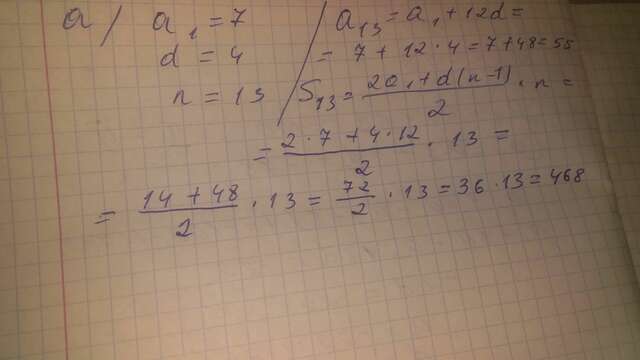 a/ a₁ = 7 / a₁₃ = a₁ + 12d =
d = 4 = 7 + 12 · 4 = 7 + 48 = 55
n = 13 / S₁₃ = (2a₁ + d(n-1))/2 · n =
= (2 · 7 + 4 · 12)/2 · 13 =
= (14 + 48)/2 · 13 = 72/2 · 13 = 36 · 13 = 468